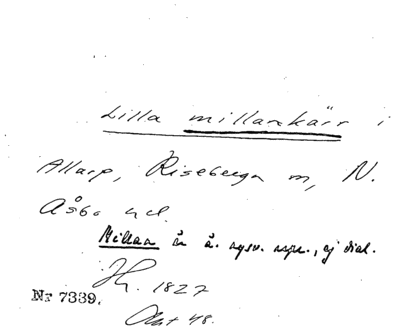 Lilla millankärr i
Allarp, Riseberga sn, N.
Åsbo hd.
Millan är ä. nysv. , ej dial.
Jh. 1827
Nr 7339.
Okt 48.